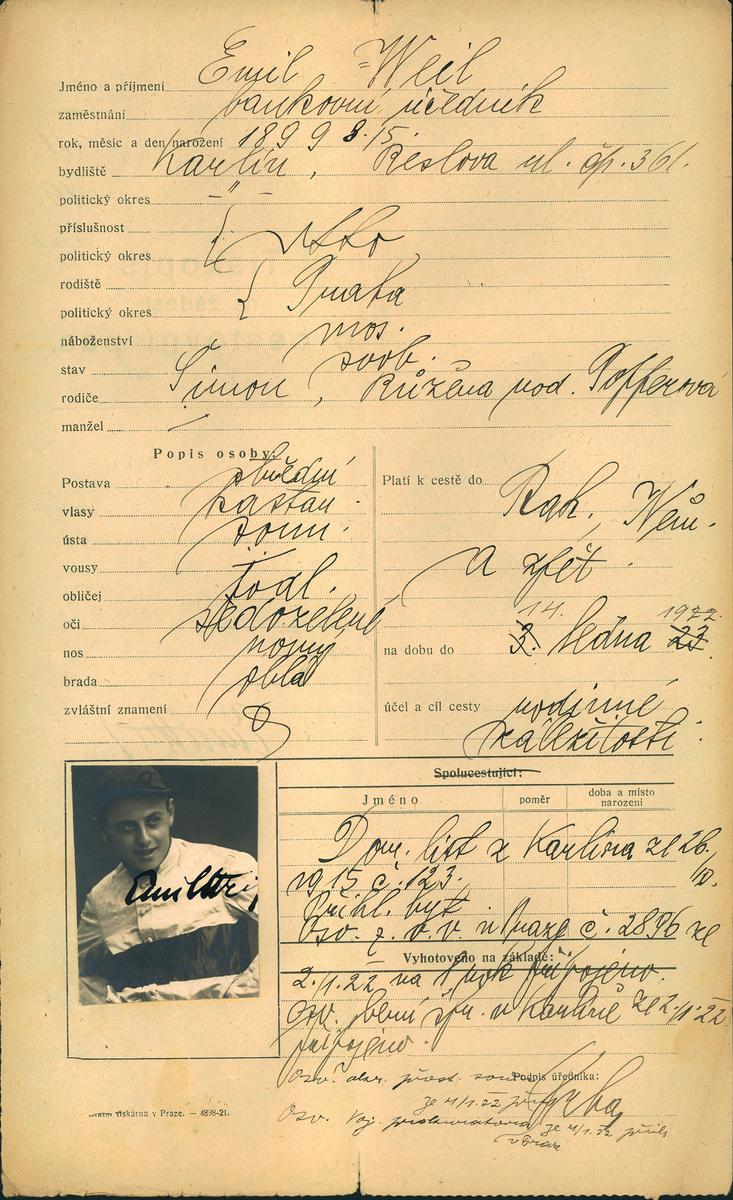 Jméno a příjmení Emil Weil
zaměstnání bankovní úředník
rok, měsíc a den narození 1899 8. 15.
bydliště Karlín, Reslova ul. čp. 361.
politický okres — " —
příslušnost
politický okres
rodiště Praha
politický okres
náboženství mos.
stav svob.
rodiče Šimon, Růžena roz. Pofferová
manžel
Popis osoby:
Postava střední
vlasy kaštan.
ústa soum.
vousy
obličej podl.
oči šedozelené
nos rovný
brada oblá
zvláštní znamení
Platí k cestě do Rak., Něm.
a zpět.
na dobu do 3. 14. ledna 23 1922.
účel a cíl cesty rodinné
záležitosti.
Spolucestující:
Jméno poměr doba a místo narození
Dom. list z Karlína ze 26.
1915 č. 123. /10.
Přihl. byt.
Osv. z. o. v. v Praze č. 2896 ze
Vyhotoveno na základě:
2./1. 22 na připojeno.
Osv. berní spr. v Karlíně ze 2./1. 22
připojeno.
Osv. okr. soudu
Podpis úředníka:
ze 4/1. 22
Osv. voj. prokuratora ze 4/1. 22
v Praze
tiskárna v Praze. — 4898-21.